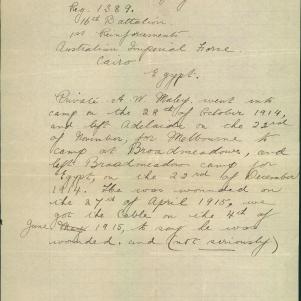 Reg. 1389.
16th Battalion.
1st Reinforcements
Australian Imperial Force.
Cairo
Egypt.
Private A. W. Maley, went into
camp on the 28th of October 1914,
and left Adelaide on the 22nd
of November, for Melbourne to
camp at Broadmeadows, and
left Broadmeadow camp for
Egypt, on the 22nd of December
1914. He was wounded on
the 27th of April 1915, we
got the Cable on the 4th of
June May 1915, to say he was
wounded. and (not seriously)